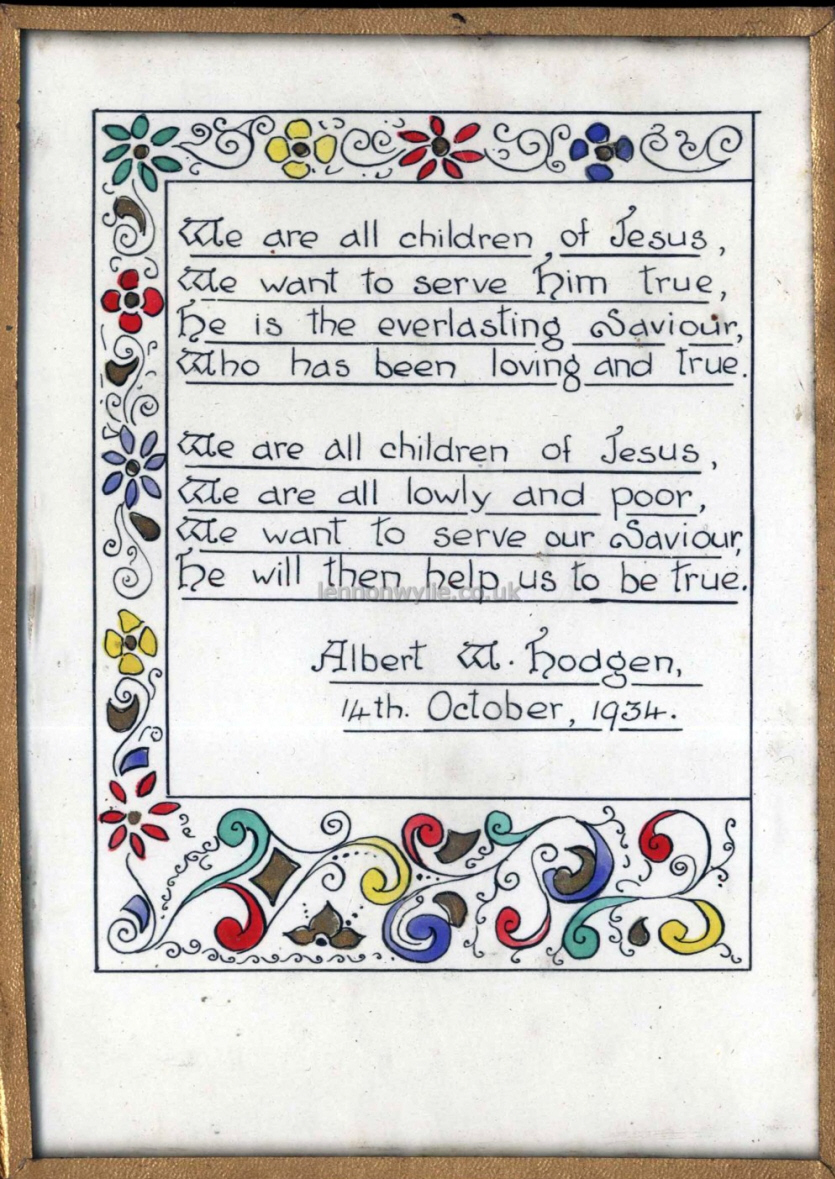 We are all children of Jesus,
We want to serve Him true,
He is the everlasting Saviour,
Who has been loving and true.
We are all children of Jesus,
We are all lowly and poor,
We want to serve our Saviour,
He will then help us to be true.
lennonwylie.co.uk
Albert W. Hodgen,
14th. October, 1934.